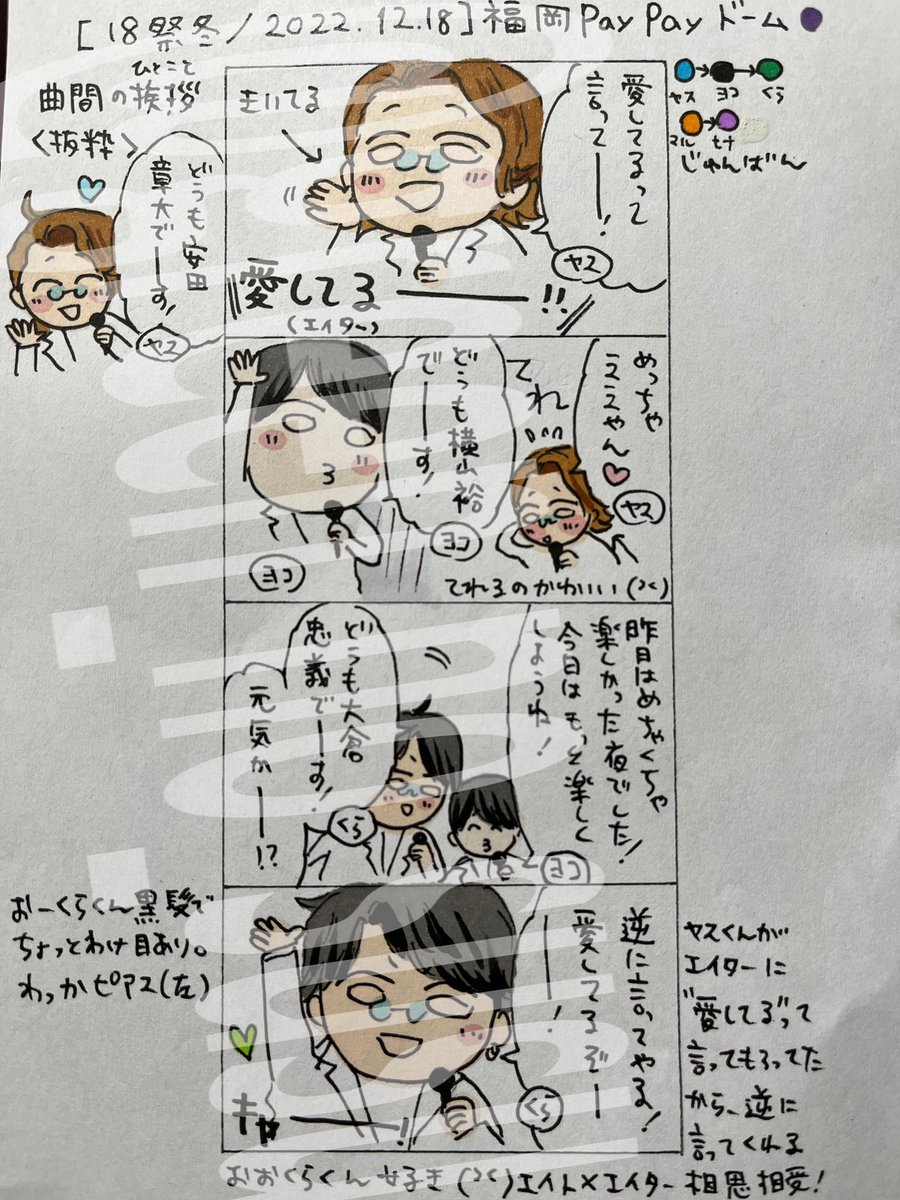 [18祭冬/2022.12.18]福岡PayPayドーム
ひとこと
曲間の挨拶
<抜粋>
ヤス
ヨコ
くら
マル
ヒナ
じゅんばん
どうも安田
章大でーーす!
ヤス
愛してるって
言ってーー!
ヤス
きいてる
愛してるーー!!
(エイター)
めっちゃ
ええやん
ヤス
てれ
どうも横山裕
でーーす!
ヨコ
ヨコ
てれるのかわいい
昨日はめちゃくちゃ
楽しかった夜でした!
今日はもっと楽しく
しようね!
ヨコ
どうも大倉
忠義でーーす!
元気かーー!?
くら
逆に言ってやる!
愛してるぞー
ーー!
くら
キャーー!
おーくらくん黒髪で
ちょっとわけ目あり。
わっかピアス(左)
ヤスくんが
エイターに
"愛してる"って
言ってもろってた
から、逆に
言ってくれる
おおくらくん好き エイト×エイター相思相愛!